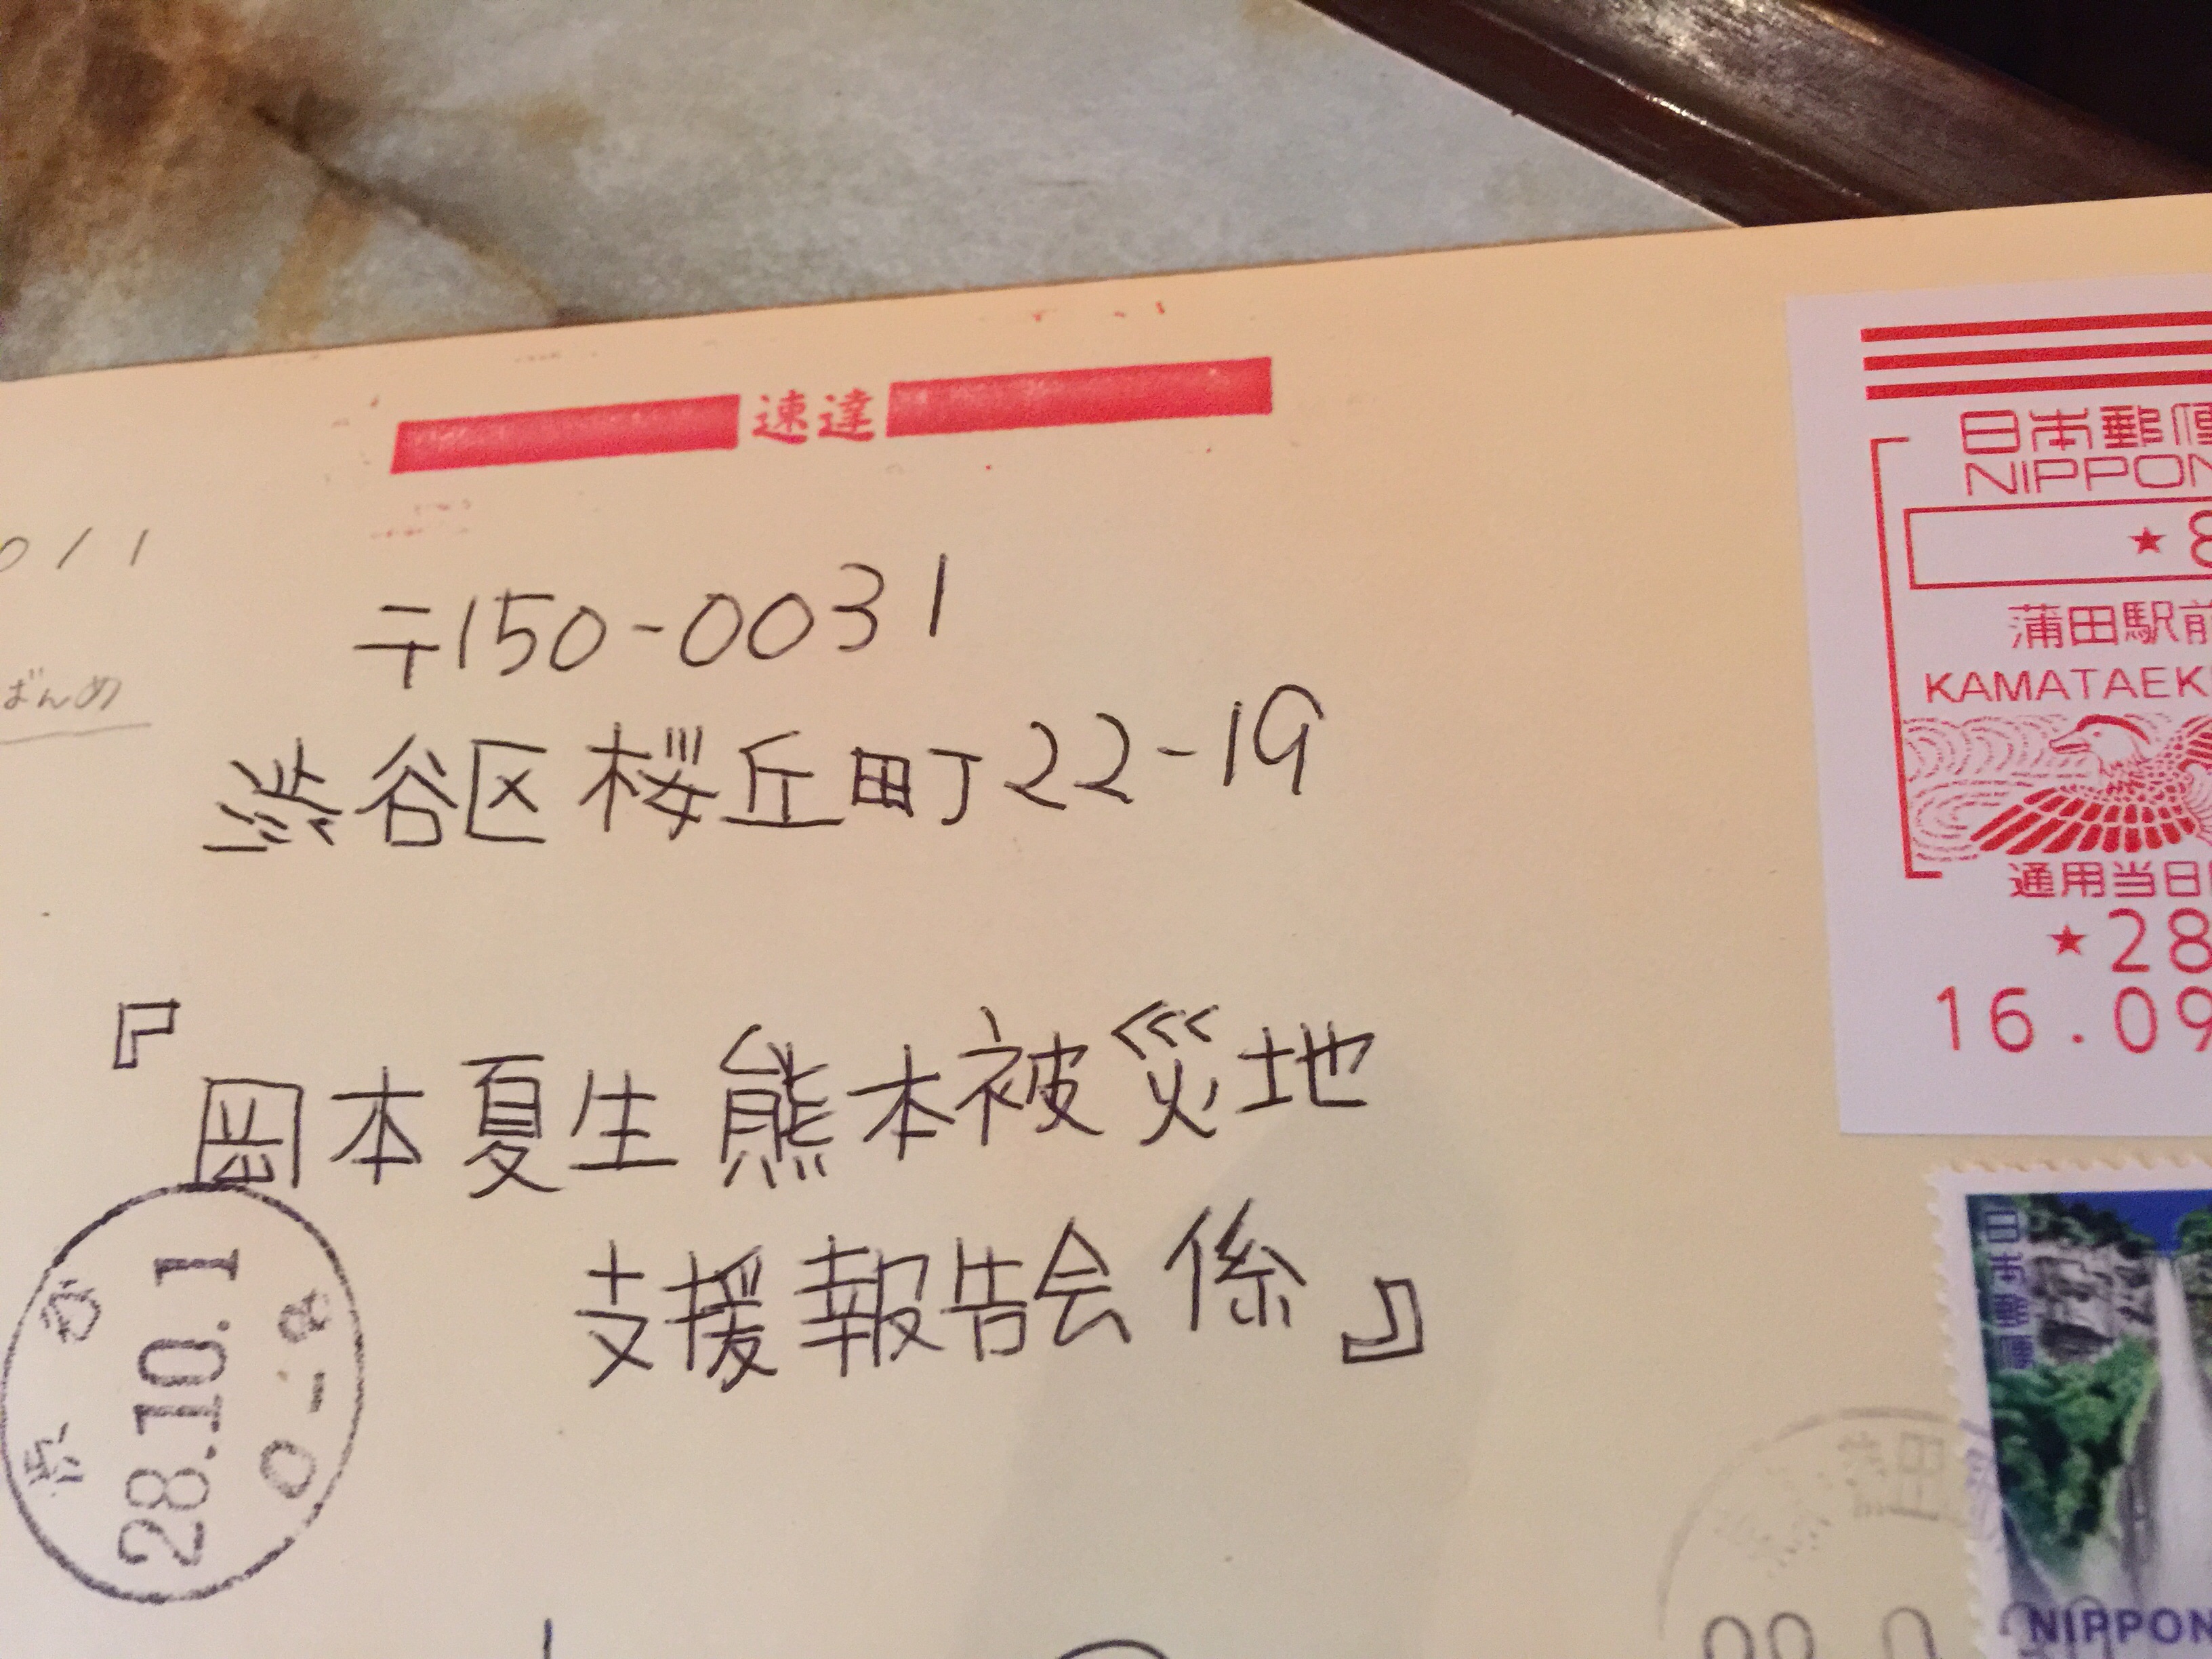 速達
〒150-0031
渋谷区桜丘町22-19
『岡本夏生熊本被災地
支援報告会係』
ばんめ
28.10.1
日本郵便
NIPPON
蒲田駅前
KAMATAEK
通用当日
★28
16.09
日本郵便
NIPPON